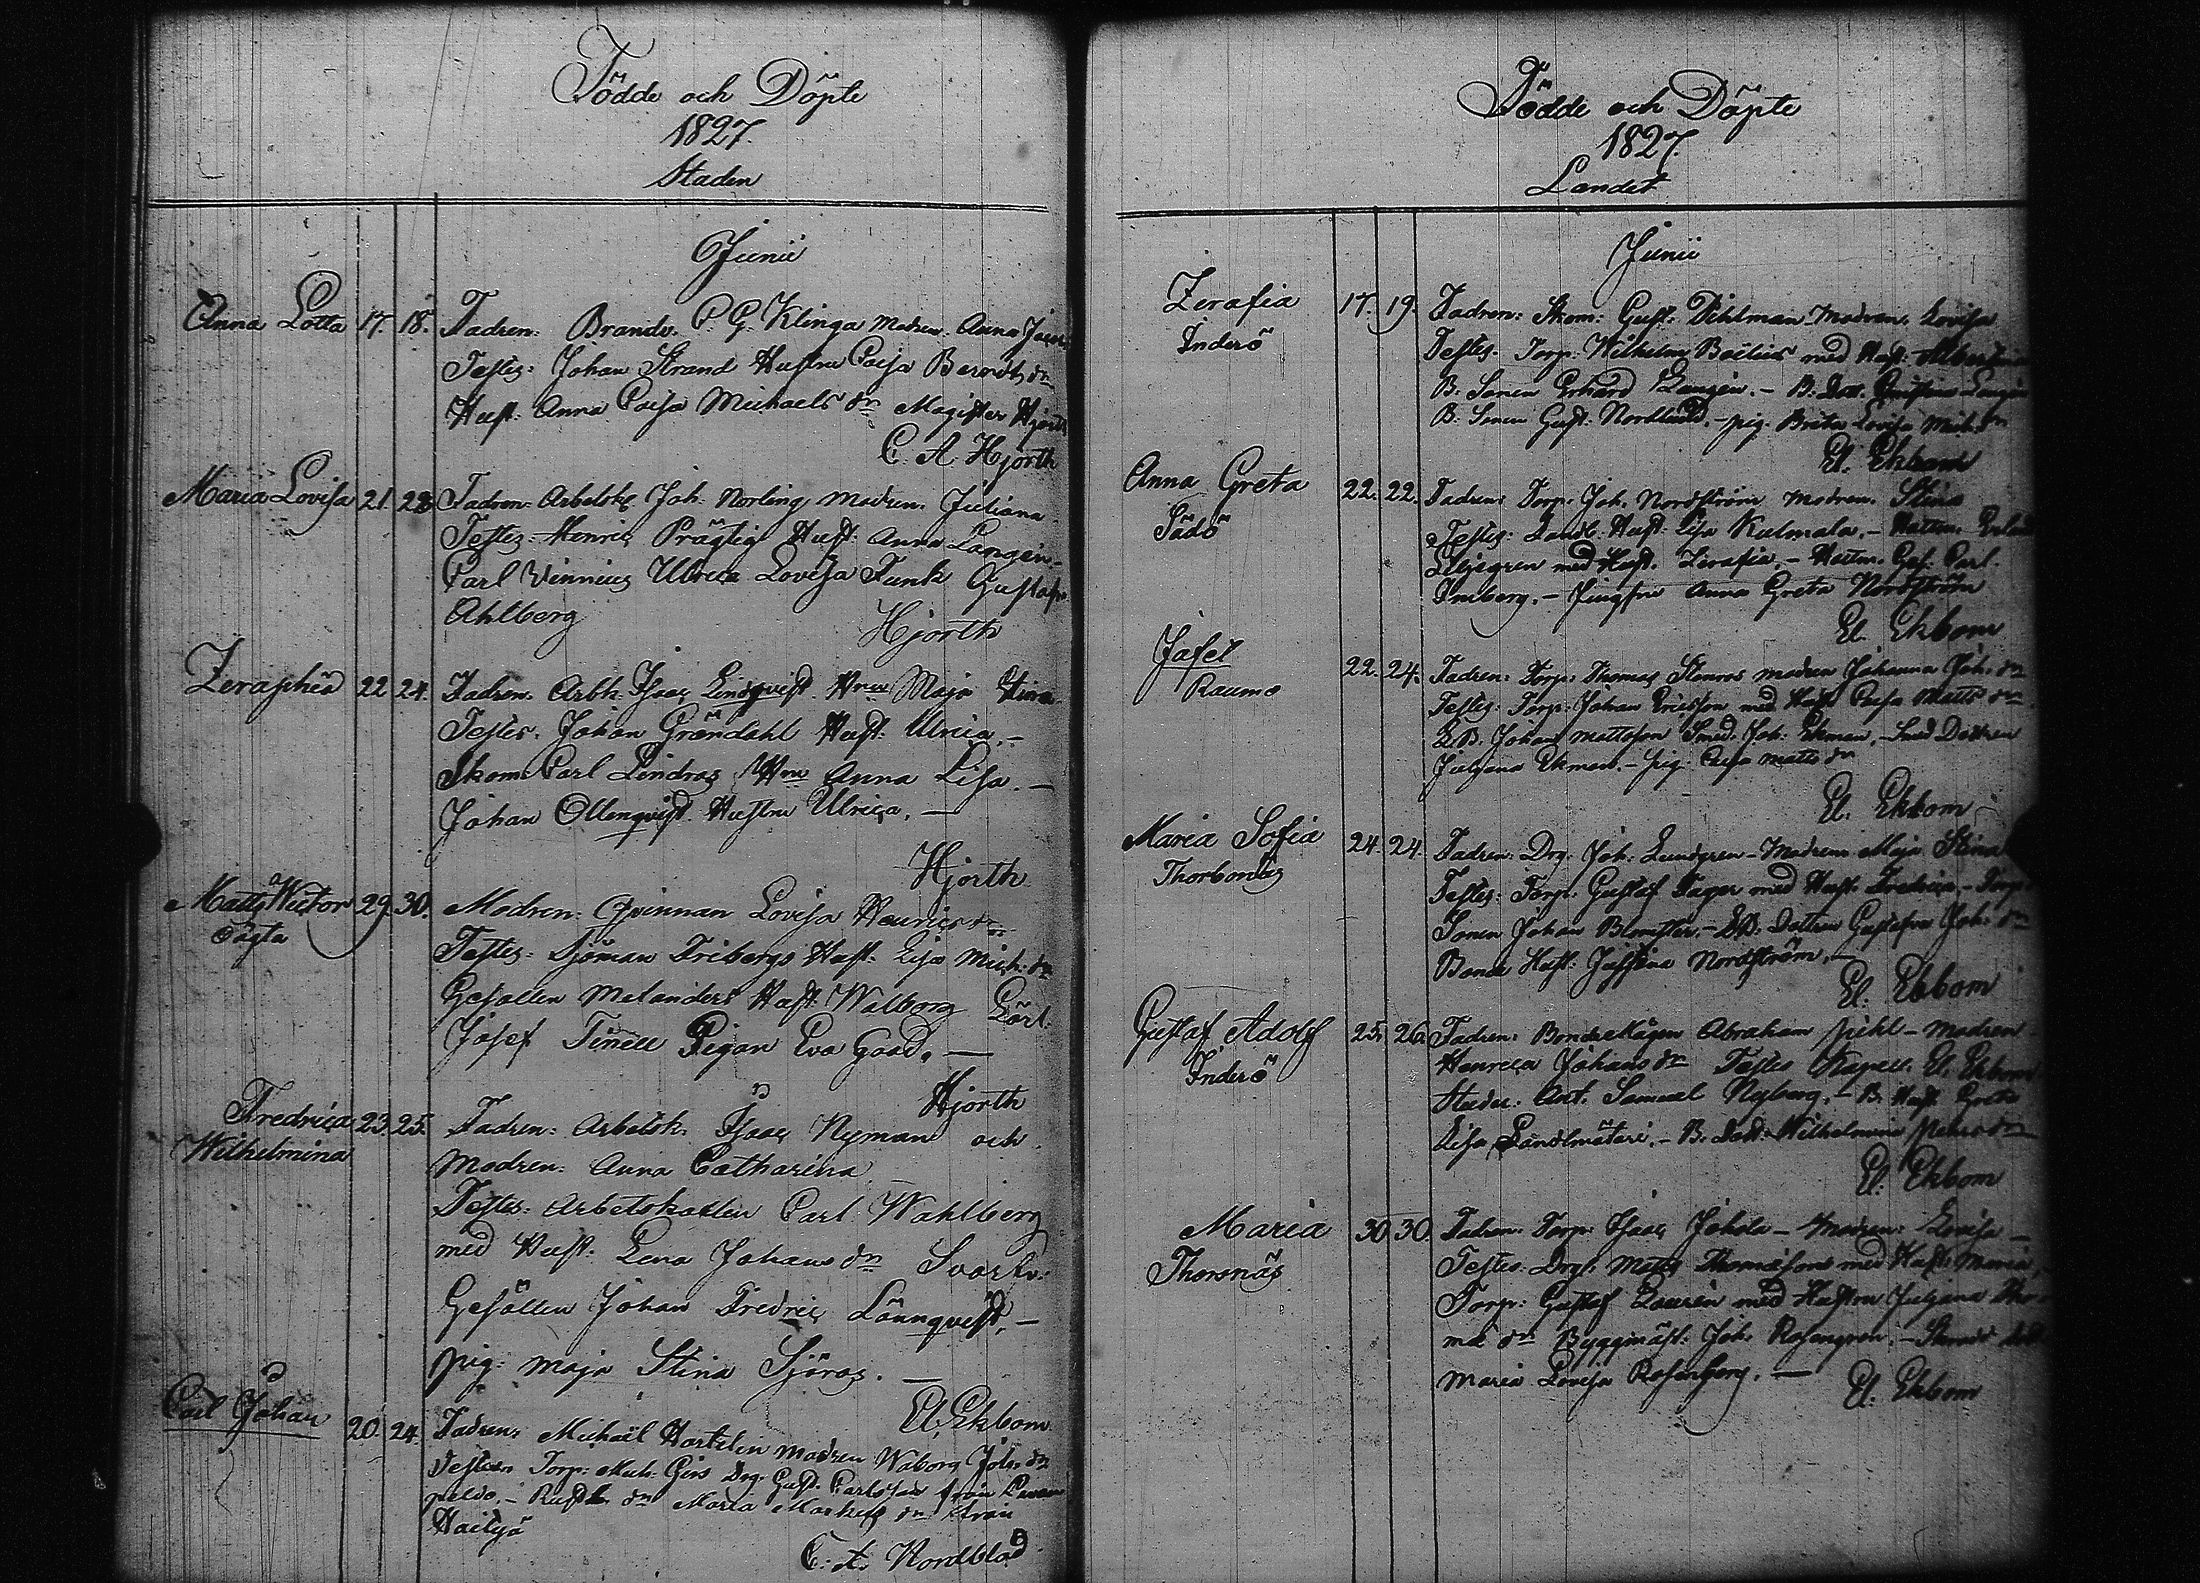 Födde och Döpte
1827.
Staden
Junii
Anna Lotta 17. 18. Fadren: Brandv. P. G. Klinga Modren. Anna
Testes: Johan Strand Hustru Caisa Berndts dr
Hust. Anna Caisa Michaels dr Magister Hjorth
C. A. Hjorth
Maria Lovisa 21. Fadren. Arbetsk. Joh. Norling Modren. Juliana
Testes Henric Prägtig Hust. Anna Langen
Carl Vinnius Ulrica Lovisa Funk Gustafva
Ahlberg Hjorth
Zeraphia 22 24. Fadren. Arbk. Isaac Lindqvist. Hru Maja Stina
Testes. Johan Gröndahl Hust. Ulrica. –
Skom. Carl Lindros Hru Anna Lisa. –
Johan Ollenqvist. Hustru Ulrica. –
Hjorth
Matts Wictor 29. 30. Modren: Qvinnan Lovisa Henrics dr
Testes: Sjöman Fribergs Hust. Lisa Mich. dr
Gesällen Melanders Hust. Walborg Lärl.
Josef Tinell Pigan Eva Gaad. –
Hjorth
Fredrica 23. 25. Fadren: Arbetsk. Isaac Nyman och
Wilhelmina
Modren: Anna Catharina
Testes: Arbetskarlen Carl Wahlberg
med Hust. Lena Johans dr Svarfv.
Gesällen Johan Fredric Lönnqvist. –
pig: Maja Stina Sjöros. –
El. Ekbom
Carl Johan 20. 24. Fadren: Michaël Hartelin modren Waborg Joh. dr
Testes Torp: Mich. Girs Drg. Gust. Carlsson från
Maria Markus dr från
C. A. Nordblad
Födde och Döpte
1827.
Landet
Junii
Zerafia 17. 19. Fadren: Skom: Gust. Pihlman Modren. Lovisa
Inderö
Testes. Torp. Wilhelm Boëlius med Hust.
B. Sonen Erhard Langén. – B. Dott.
B. Sonen Gust. Nordlund. – pig. Brita Lovisa Mich. dr
El. Ekbom
Anna Greta 22. 22. Fadren: Torp. Joh. Nordström Modren. Stina
Sädö
Testes. Hust. Lisa Kulmala. –
Liljegren med Hust. Zerafia. – Ges. Carl
Friberg. – Jungfru Anna Greta Nordström
El. Ekbom
Josef 22. 24. Fadren: Torp. Thomas Stenros modren Johanna Joh. dr
Raumo
Testes. Torp. Johan Ericsson med Hust. Caisa Matts dr
Johan Mattsson Smed. Joh. Ekman. – Smed Dottren
Juljana Ekman. – pig. Caisa Matts dr
El. Ekbom
Maria Sofia 24. 24. Fadren: Drg. Joh. Lundgren – Modren Maja Stina
Testes: Torp. Gustaf Fager med Hust. Fredrica – Torp.
Sonen Johan Blomster. – Dottren Gustafva Joh. dr
Bonde Hust. Justina Nordström. –
El. Ekbom
Gustaf Adolf 25. 26. Fadren: Abraham Pihl – Modren
Inderö
Henrica Johans dr Testes El. Ekbom
Samuel Nyberg. – B. Hust. Greta
Lisa – B. Dott. Wilhelmina
El. Ekbom
Maria 30. 30. Fadren: Torp. Isaac Jokela – Modren: Lovisa –
Thorsnäs
Testes. Drg. Matts Thomasson med Hust. Maria,
Torp: Gustaf Laurén med Hustru Juljana Tho-
mæ dr Byggmäst. Joh. Rosengren. –
Maria Lovisa Rosenberg. –
El. Ekbom